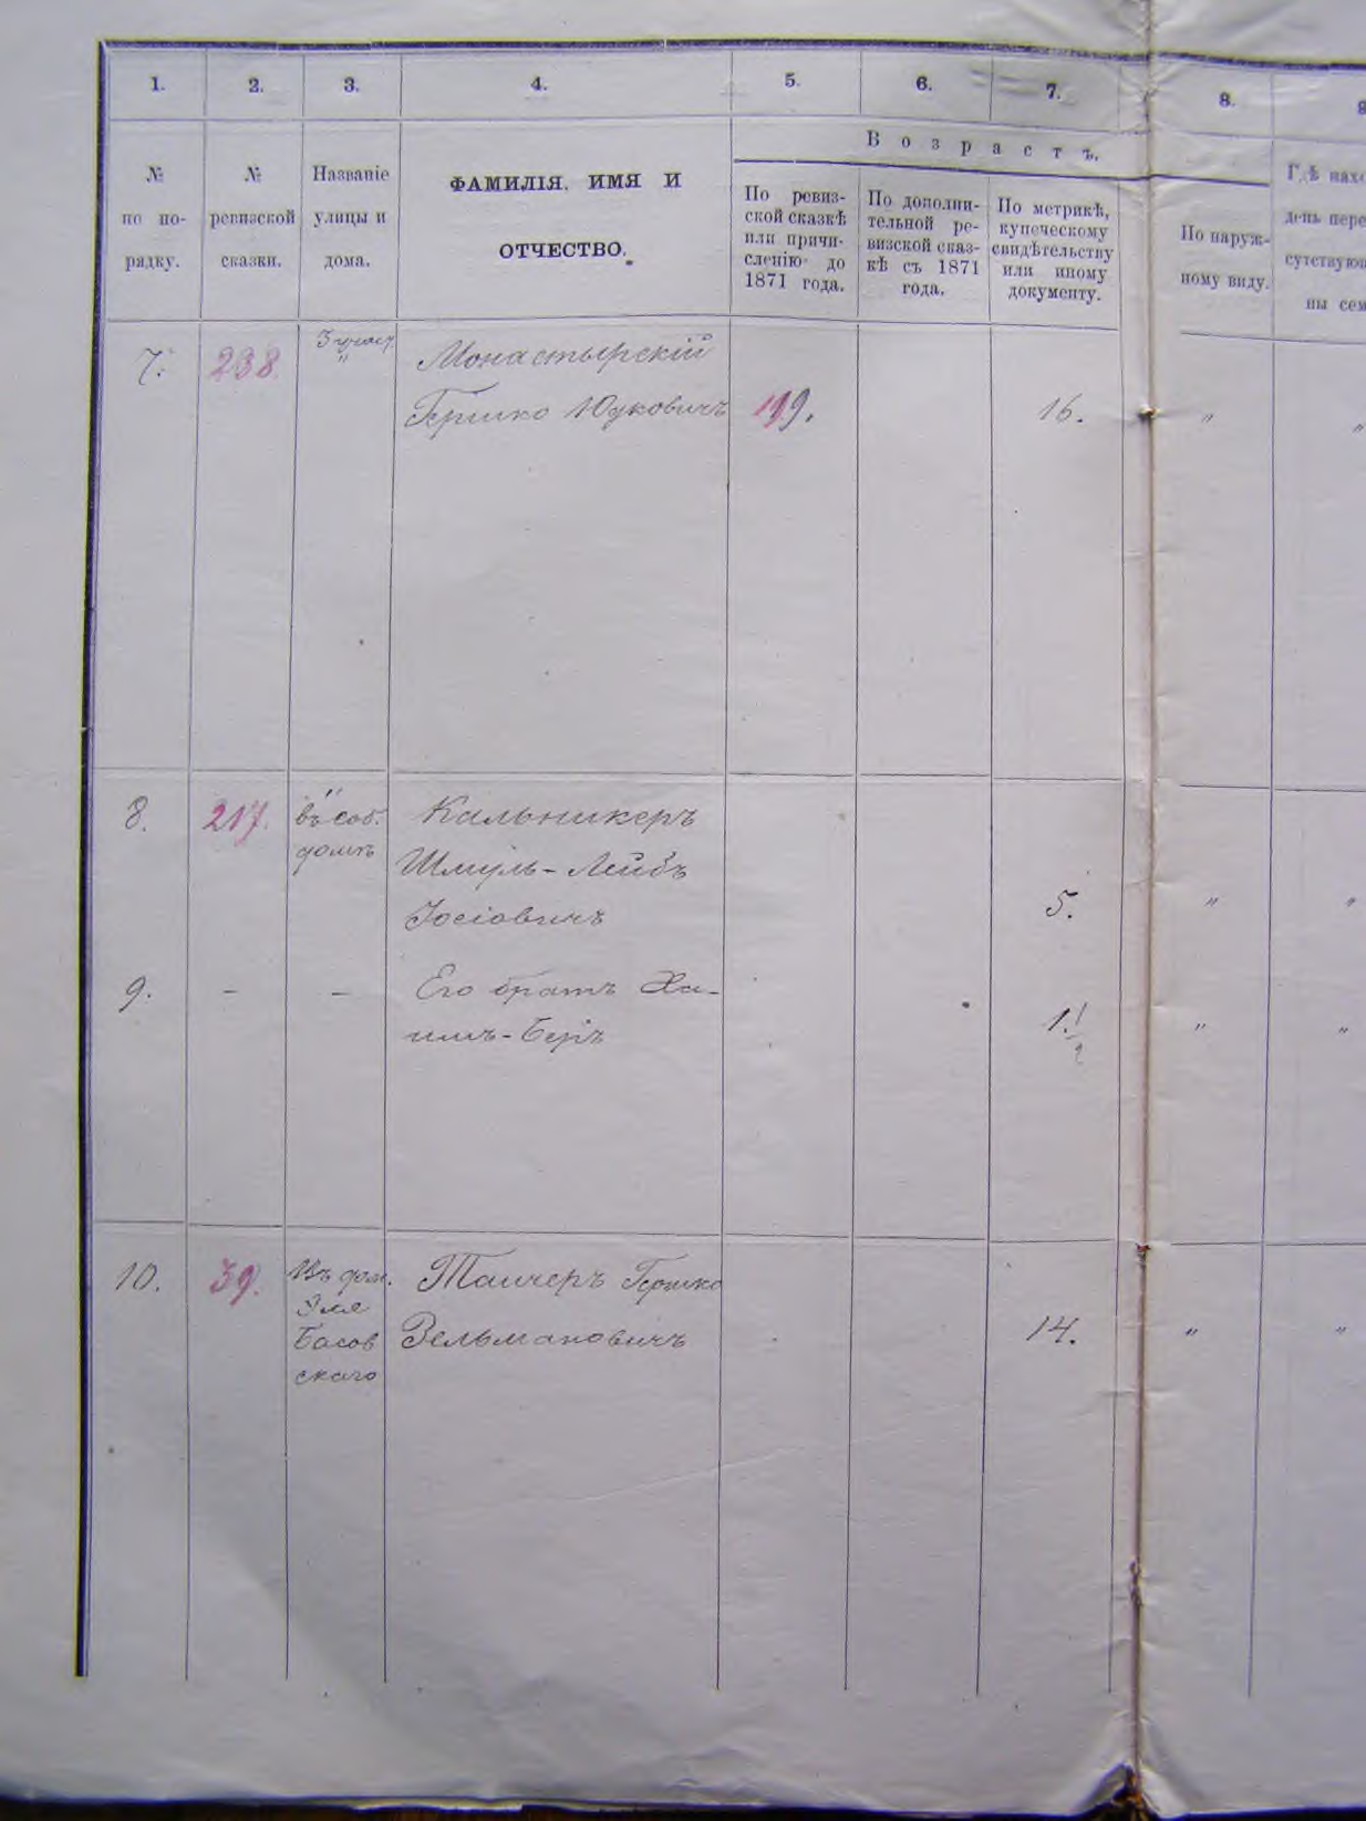 1.
2.
3.
4.
5.
6.
7.
8.
В о з р а с т ъ.
№
по по-
рядку.
№
ревизской
сказки.
Названіе
улицы и
дома.
ФАМИЛІЯ, ИМЯ И
ОТЧЕСТВО.
По ревиз-
ской сказкѣ
или причи-
сленію до
1871 года.
По дополни-
тельной ре-
визской сказ-
кѣ съ 1871
года.
По метрикѣ,
купеческому
свидѣтельству
или иному
документу.
По наруж-
ному виду.
Гдѣ нахо
день пере
сутствующ
ны сем
7.
238.
3 участ.
"
Монастырскій
Гершко Юдковичъ
16.
"
"
8.
217.
"
въ соб.
домѣ
Кальникеръ
Шмуль-Лейбъ
Іосіовичъ
5.
"
"
9.
-
-
Его братъ Ха-
имъ-Беръ
1. 1/2
"
"
10.
39.
Въ дом.
Эля
Басов
скаго
Таичеръ Гершко
Зельмановичъ
14.
"
"